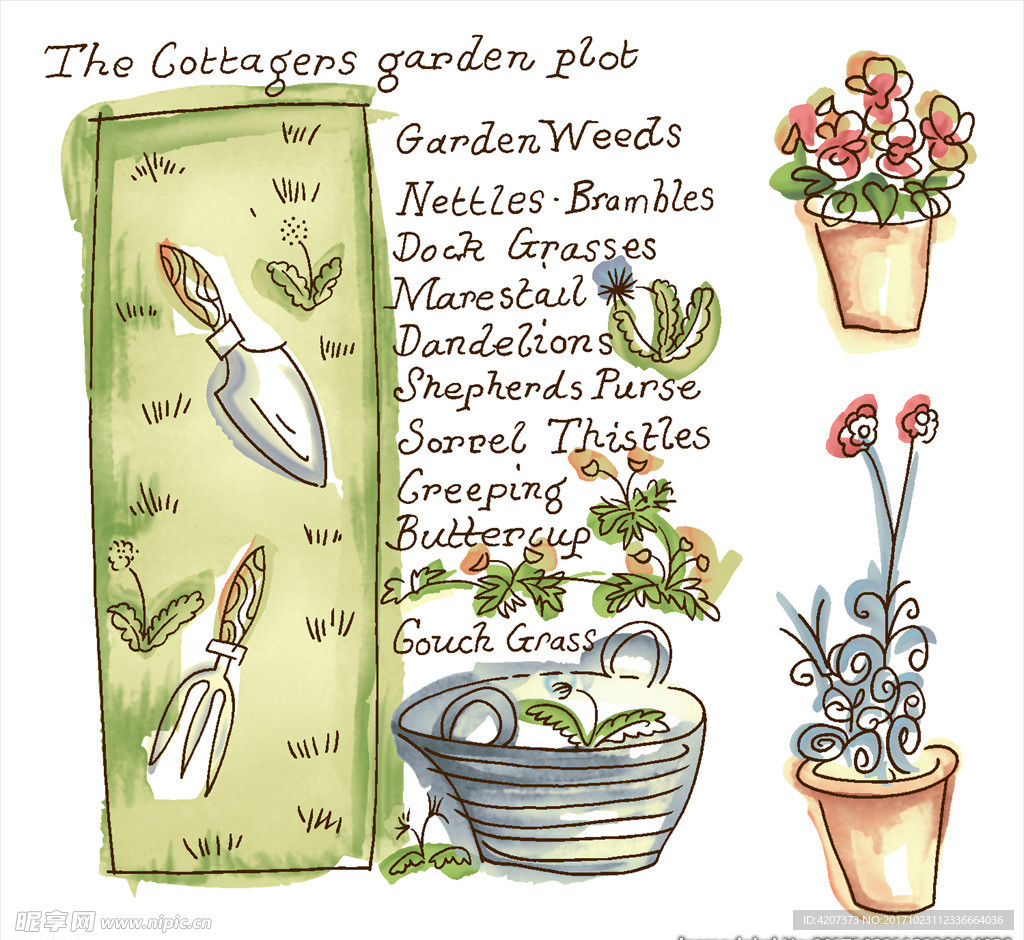 The Cottagers garden plot
Garden Weeds
Nettles · Brambles
Dock Grasses
Marestail
Dandelions
Shepherds Purse
Sorrel Thistles
Creeping
Buttercup
Couch Grass
昵享网 www.nipic.cn
ID:4207373 NO:20171023112336664036